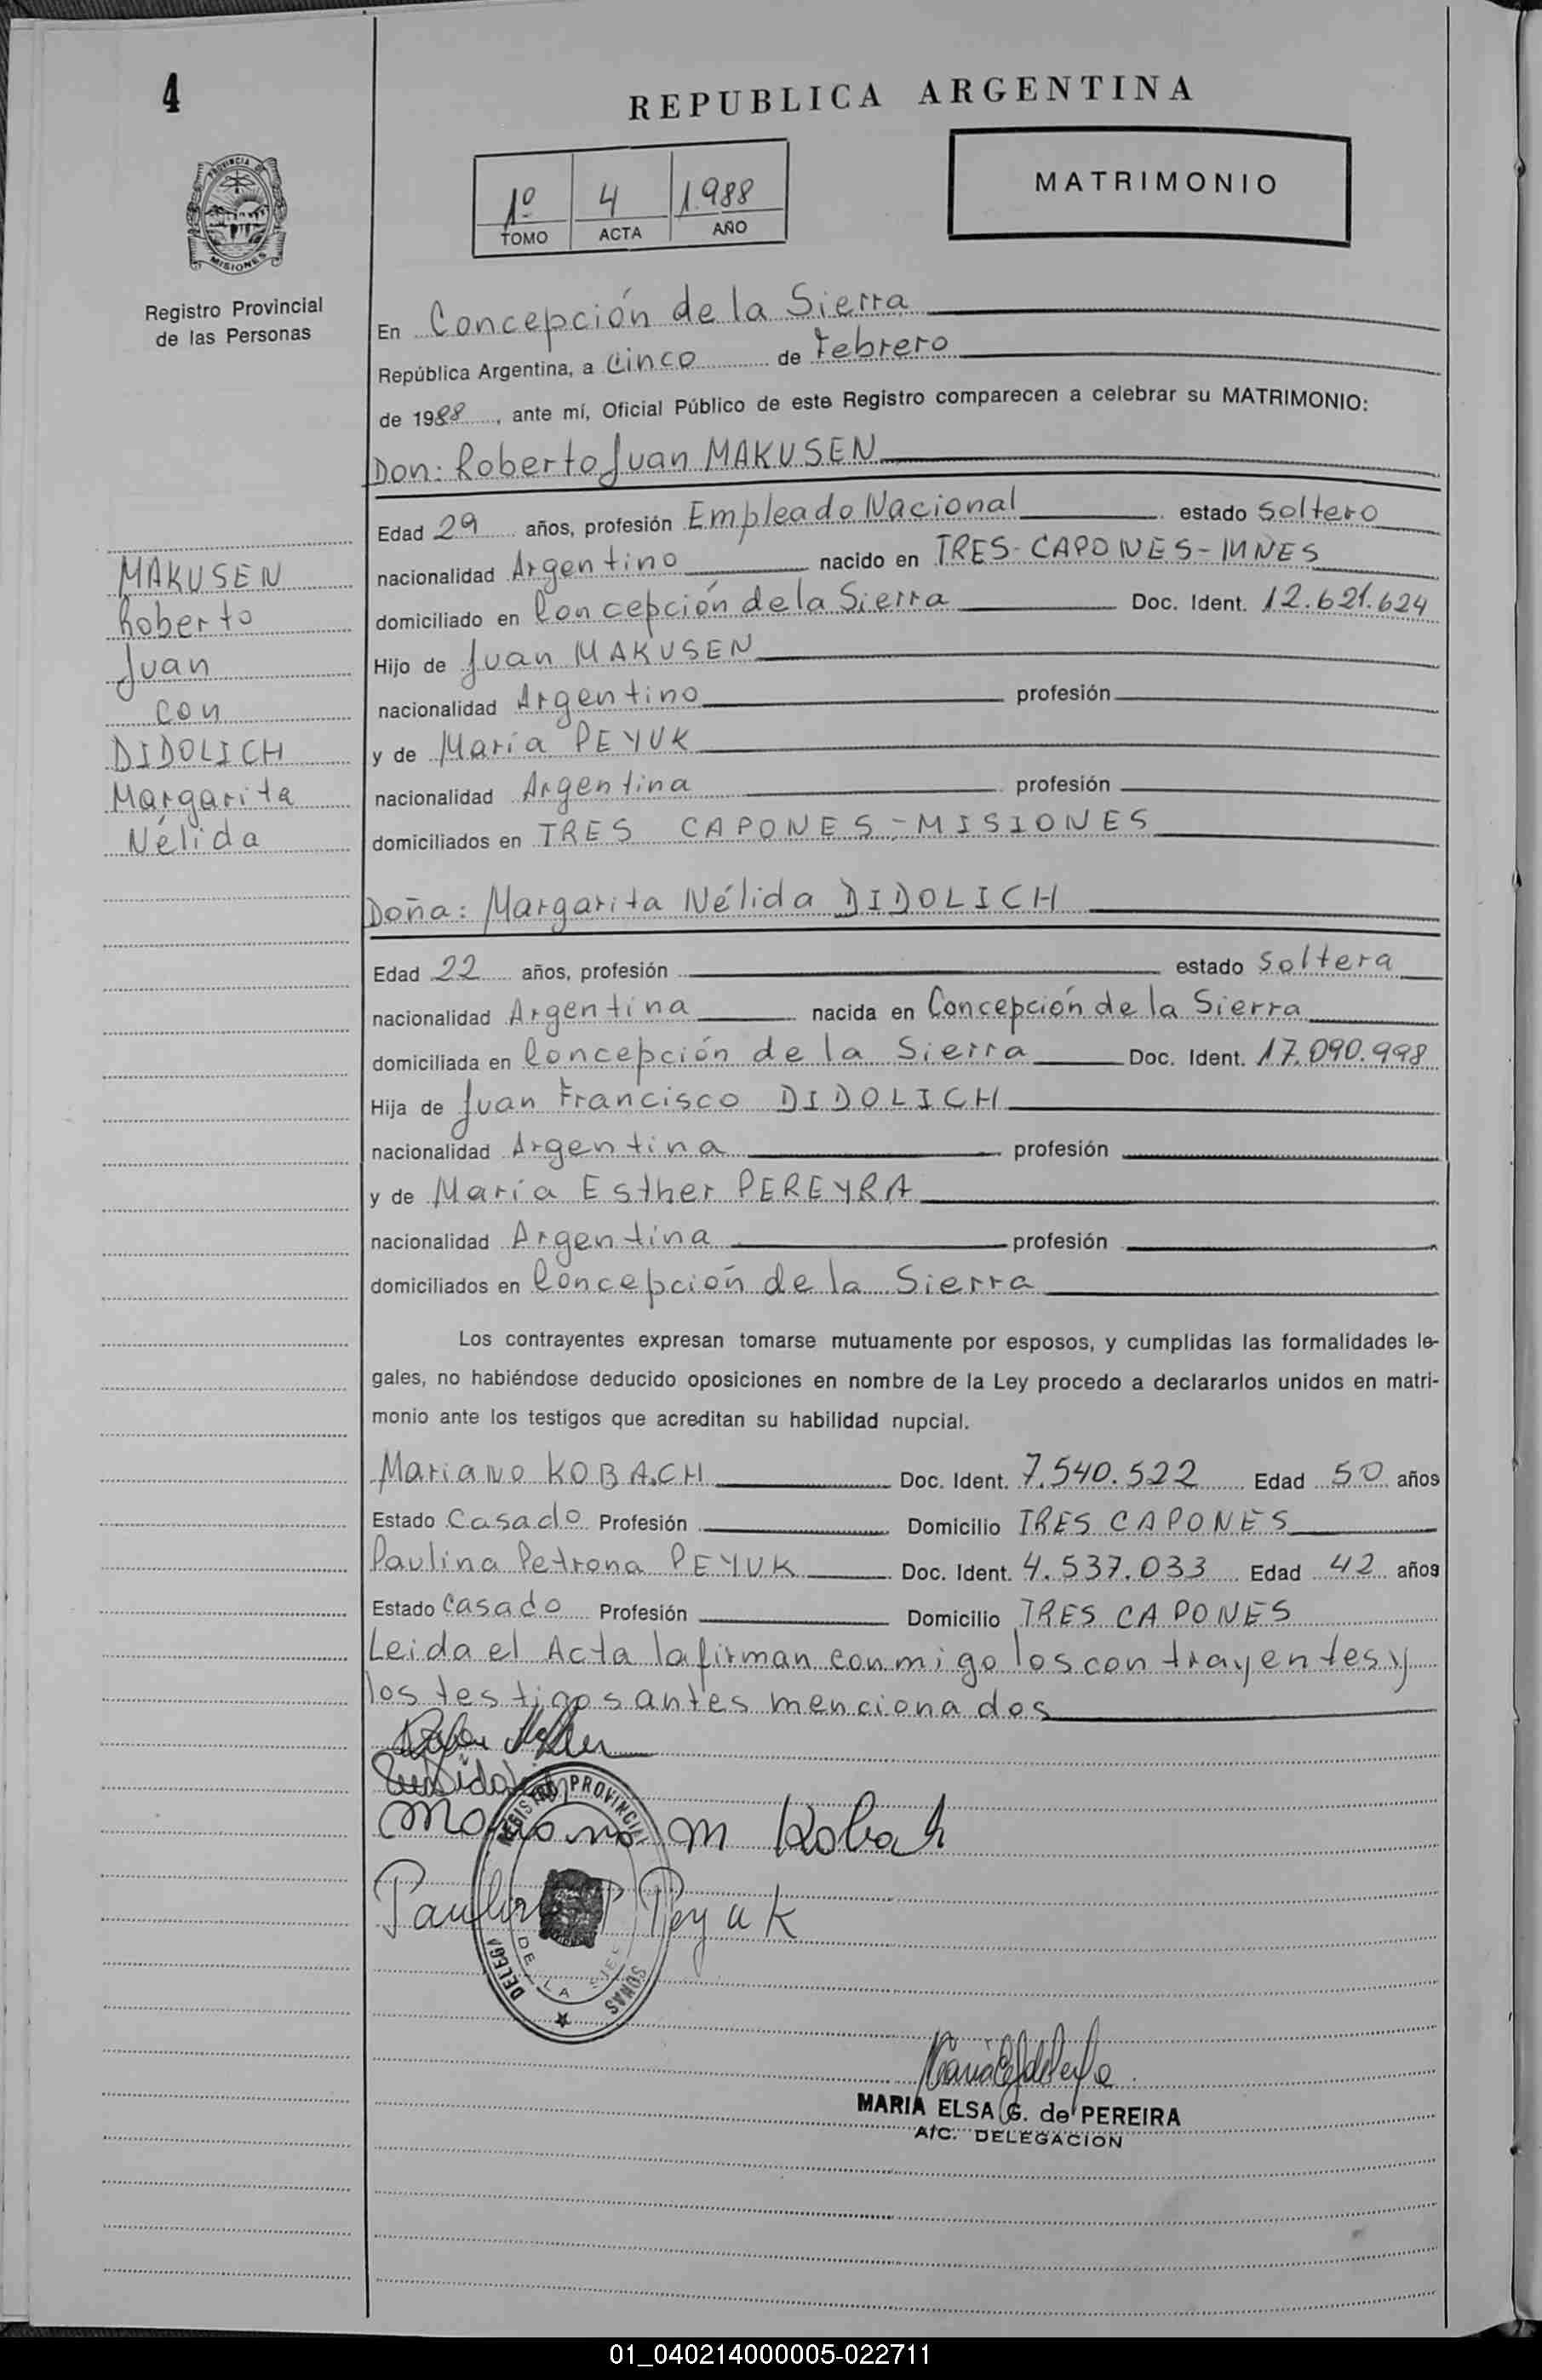 4
REPUBLICA ARGENTINA
PROVINCIA DE
MISIONES
Registro Provincial
de las Personas
1º 4 1.988
TOMO ACTA AÑO
MATRIMONIO
En Concepción de la Sierra
República Argentina, a cinco de Febrero
de 1988, ante mí, Oficial Público de este Registro comparecen a celebrar su MATRIMONIO:
Don: Roberto Juan MAKUSEN
Edad 29 años, profesión Empleado Nacional estado soltero
nacionalidad Argentino nacido en TRES-CAPONES-MNES
domiciliado en Concepción de la Sierra Doc. Ident. 12.621.624
Hijo de Juan MAKUSEN
nacionalidad Argentino profesión
y de María PEYUK
nacionalidad Argentina profesión
domiciliados en TRES CAPONES-MISIONES
MAKUSEN
Roberto
Juan
con
DIDOLICH
Margarita
Nélida
Doña: Margarita Nélida DIDOLICH
Edad 22 años, profesión estado soltera
nacionalidad Argentina nacida en Concepción de la Sierra
domiciliada en Concepción de la Sierra Doc. Ident. 17.090.998
Hija de Juan Francisco DIDOLICH
nacionalidad Argentina profesión
y de María Esther PEREYRA
nacionalidad Argentina profesión
domiciliados en Concepción de la Sierra
Los contrayentes expresan tomarse mutuamente por esposos, y cumplidas las formalidades le-
gales, no habiéndose deducido oposiciones en nombre de la Ley procedo a declararlos unidos en matri-
monio ante los testigos que acreditan su habilidad nupcial.
Mariano KOBACH Doc. Ident. 7.540.522 Edad 50 años
Estado Casado Profesión Domicilio TRES CAPONES
Paulina Petrona PEYUK Doc. Ident. 4.537.033 Edad 42 años
Estado casado Profesión Domicilio TRES CAPONES
Leida el Acta la firman conmigo los contrayentes y
los testigos antes mencionados
Mariano M Kobach
Paulina P Peyuk
REGISTRO PROVINCIAL
DE LA
MARIA ELSA G. de PEREIRA
A/C. DELEGACION
01_040214000005-022711